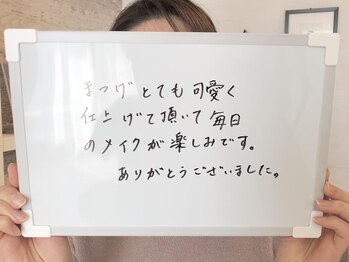 まつげとても可愛く
仕上げて頂いて毎日
のメイクが楽しみです。
ありがとうございました。